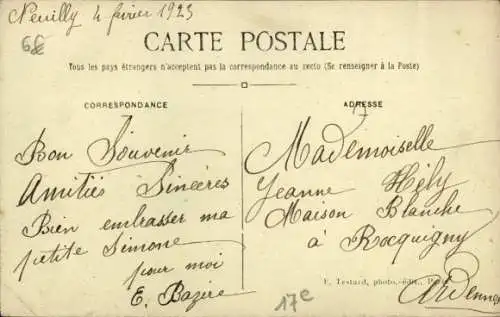 Neuilly 4 février 1923
6€
CARTE POSTALE
Tous les pays étrangers n'acceptent pas la correspondance au recto (Se renseigner à la Poste)
CORRESPONDANCE
Bon Souvenir
Amitiés Sincères
Bien embrasser ma
petite Simone
pour moi
E. Bazire
ADRESSE
17
Mademoiselle
Jeanne Hély
Maison Blanche
à Rocquigny
Ardennes
E. Testard, photo.-édit.,
17e